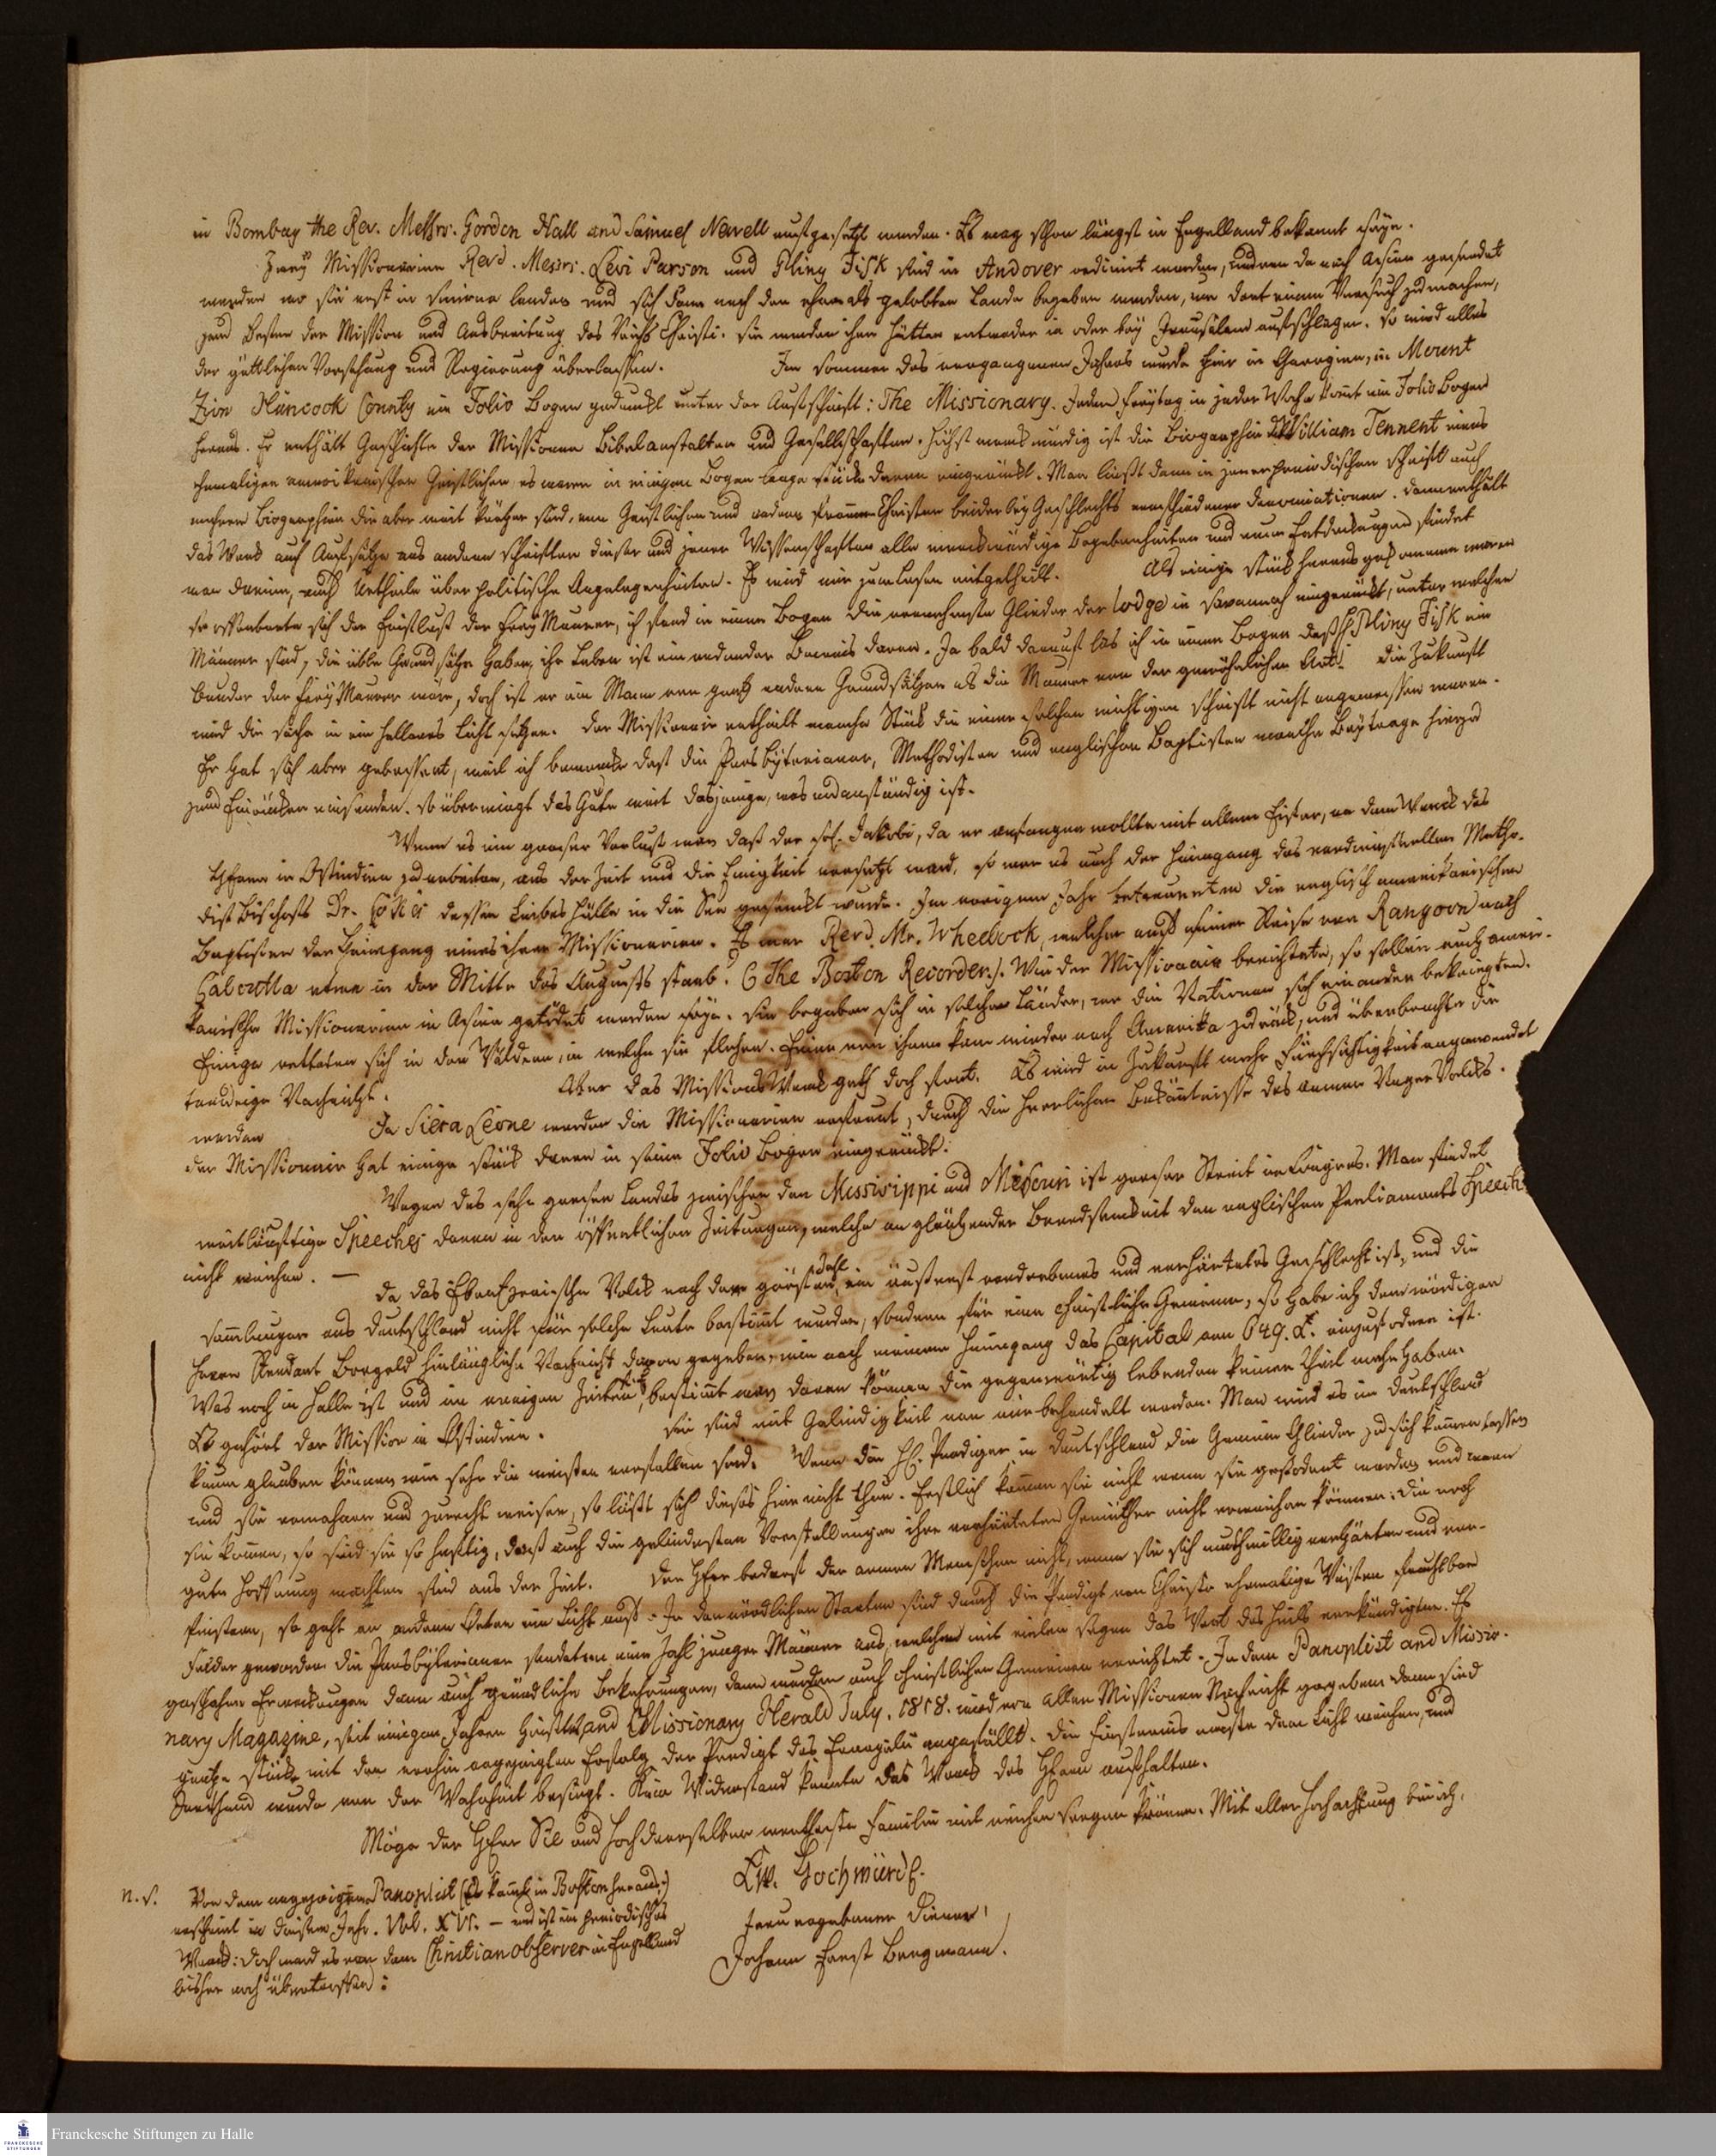 in Bombay the Rev. Messrs. Gordon Hall and Samuel Newell ausgesetzt worden. Es mag schon längst in Engelland bekannt seyn.
Zwey Missionarien Revd. Messrs. Levi Parson und Pliny Fisk sind in Andover ordinirt worden, und nach Asien gesendet
worden wo sie erst in Smirna landen und sich dann nach dem ehemals gelobten Lande begeben werden, um dort einen Versuch zu machen,
zum Besten der Mission und Ausbreitung des Reichs Christi. Sie werden ihre Hütten entweder in oder bey Jerusalem aufschlagen. So wird alles
der göttlichen Vorsehung und Regierung überlassen. Im Sommer des vergangenen Jahres wurde hier in Georgien, in Mount
Zion Hancock County ein Folio Bogen gedruckt unter der Aufschrift: The Missionary. Jeden Freytag in jeder Woche komt ein Folio Bogen
heraus. Er enthält Geschichte der Missionen Bibelanstalten und Gesellschaften. Höchst merckwürdig ist die Biographie William Tennent eines
ehemaligen amerikanischen Geistlichen es waren in einigen Bogen lange Stücke davon eingerückt. Man liesst dann in jener periodischen Schrift auch
mehrere Biographien die aber weit kürtzer sind, von Geistlichen und andern frommen Christen beiderley Geschlechts verschiedener denominationen. Dann enthält
das Werck auch Aufsätze aus andern Schriften dieser und jener Wissenschaften alle merckwürdige Begebenheiten und neue Entdeckungen findet
man darinn, auch Urtheile über politische Angelegenheiten. Es wird mir zum Lesen mitgetheilt. Als einige Stück heraus gekommen waren
so offenbarte sich der Einfluss der Frey Maurer, ich fand in einem Bogen die vornehmste Glieder der Lodge in Savannah eingerückt, unter welchen
Männer sind, die üble Grundsätze haben, ihr Leben ist ein redender Beweis davon. Ja bald darauf las ich in einem Bogen dass H. Pliny Fisk ein
Bruder der Frey Maurer wäre, doch ist er ein Mann von gantz andern Grundsätzen als die Maurer von der gewöhnlichen Art. Die Zukunft
wird die Sache in ein helleres Licht setzen. Der Missionair enthielt manche Stück die einer solchen wichtigen Schrift nicht angemessen waren.
Er hat sich aber gebessert, weil ich bemercke dass die Presbyterianer, Methodisten und englischen Baptisten manche Beytraege hierzu
zum Einrücken einsenden. So überwiegt das Gute weit dasjenige, was unanständig ist.
Wenn es ein grosser Verlust war dass der sel. Jakobi, da er anfangen wollte mit allem Eifer, an dem Werck des
HErrn in Ostindien zu arbeiten, aus der Zeit und die Ewigkeit versetzt ward, so war es auch der Heimgang des verdienstvollen Metho-
dist Bischofs Dr. Cokes dessen Leibes Hülle in die See gesenckt wurde. Im vorigen Jahr betrauerten die englisch amerikanischen
Baptisten den Heimgang eines ihrer Missionarien. Es war Revd. Mr. Wheelock, welcher auf seiner Reise von Rangoon nach
Calcutta etwa in der Mitte des Augusts starb. (The Boston Recorder). Wie der Missionair berichtete, so sollen auch ameri-
kanische Missionarien in Asien getödtet worden seyn. Sie begaben sich in solche Länder, wo die Nationen sich einander bekriegten.
Einige retteten sich in den Wäldern, in welche sie flohen. Einer von ihnen kam wieder nach Amerika zurück, und überbrachte die
traurige Nachricht. Aber das Missions Werck geht doch fort. Es wird in Zukunft mehr Fürsichtigkeit angewendet
werden In Siera Leone werden die Missionarien erfreut, durch die herrlichen Bekäntnisse des armen Neger Volcks.
der Missionair hat einige Stück davon in seine Folio Bogen eingerückt.
Wegen des sehr grossen Landes zwischen den Missisippi und Missouri ist grosser Streit im Congress. Man findet
weitläuftige Speeches davon in den öffentlichen Zeitungen, welche an gläntzender Beredsamkeit den englischen Parliaments Speeches
nicht weichen. — Da das EbenEzerische Volck nach dem grössten Theil ein äusserst verdorbenes und verhärtetes Geschlecht ist, und die
Samlungen aus Deutschland nicht für solche Leute bestimt wurden, sondern für eine christliche Gemeine, so habe ich dem würdigen
Herrn Rendant Borgold hinlängliche Nachricht davon gegeben, wie nach meinem Heimgang das Capital von 649. £. einzufodern ist.
Was noch in Halle ist und in vorigen Zeiten bestimt war davon können die gegenwärtig lebenden keinen Theil mehr haben.
Es gehört der Mission in Ostindien. Sie sind mit Gelindigkeit von mir behandelt worden. Man wird es in Deutschland
kaum glauben können wie sehr die meisten verfallen sind. Wenn die HH. Prediger in Deutschland die Gemein Glieder zu sich kommen lassen
und sie ermahnen und zurecht weisen, so lässt sich dieses hier nicht thun. Erstlich kommen sie nicht wenn sie gefodert werden und wenn
sie komen, so sind sie so hastig, dass auch die gelindesten Vorstellungen ihre verhärteten Gemüther nicht erweichen können: Die noch
gute Hoffnung machten sind aus der Zeit. Der HErr bedarf der armen Menschen nicht, wenn sie sich muthwillig verhärten und ver-
finstern, so geht an andern Orten ein Licht auf. In den nördlichen Staaten sind durch die Predigt von Christo ehemalige Wüsten fruchtbare
Felder geworden. Die Presbyterianer sendeten eine Zahl junger Männer aus, welche mit vielen Segen das Wort des Heils verkündigten. Es
geschehen Erweckungen dann auch gründliche Bekehrungen, denn wurden auch christlichen Gemeinen errichtet. In dem Panoplist and Missio-
nary Magazine, seit einigen Jahren heisst es, and Missionary Herald July. 1818. wird von allen Missionen Nachricht gegeben dann sind
gantze Stücke mit dem vorhin angezeigten Erfolg der Predigt des Evangelii angefüllt. Die Finsternis musste dem Licht weichen, und
Irrthum wurde von der Wahrheit besiegt. Kein Widerstand konnte das Werck des HErrn aufhalten.
Möge der HErr Sie und Hochderselben wertheste Familie mit reichen Seegen krönen. Mit aller Hochachtung bin ich,
Ew. Hochwürd.
treu ergebener Diener,
Johann Ernst Bergmann.
N. S. Von dem angezeigten Panoplist (Es komt in Boston heraus:)
erscheint in diesem Jahr. Vol. XVI. — und ist ein periodisches
Werck: Doch ward es von dem Christian observer in Engelland
bisher noch übertroffen:
Franckesche Stiftungen zu Halle